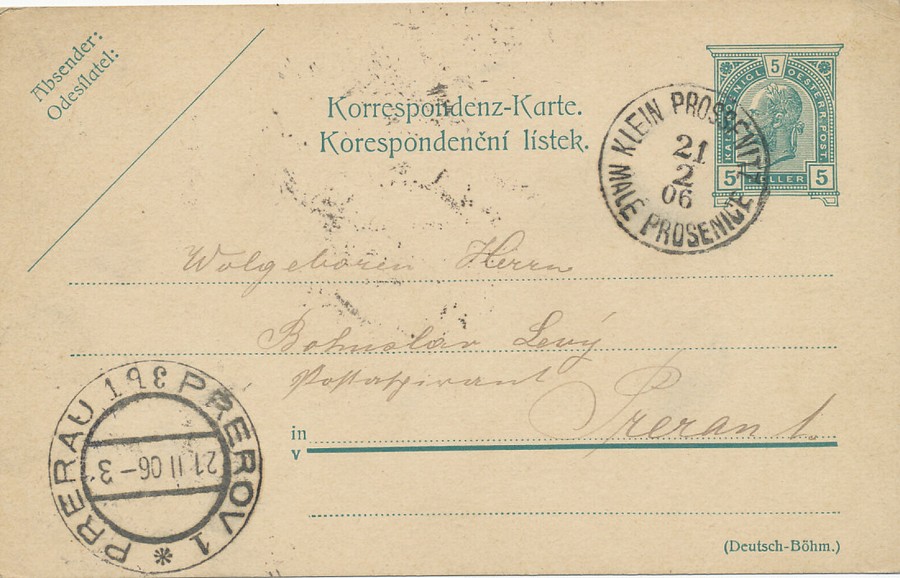 Absender:
Odesílatel:
Korrespondenz-Karte.
Korespondenční lístek.
5
KAIS. KÖNIGL. OESTERR. POST.
5 HELLER 5
KLEIN PROSSENITZ
21
2
06
MALÉ PROSENICE
Wolgeboren Herrn
Bohuslav Levý
Postaspirant
in Prerau 1.
v
PRERAU 1 PREROV 1 *
21.II 06-3
(Deutsch-Böhm.)